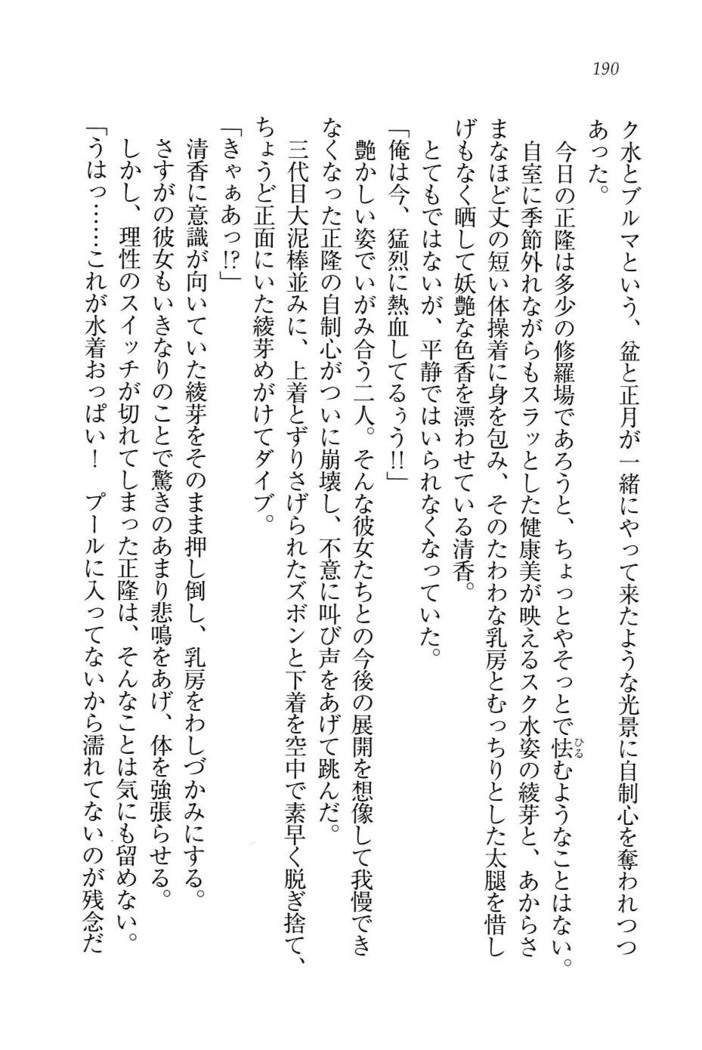 190
ク水とブルマという、盆と正月が一緒にやって来たような光景に自制心を奪われつつ
あった。
今日の正隆は多少の修羅場であろうと、ちょっとやそっとで怯むようなことはない。
ひる
自室に季節外れながらもスラッとした健康美が映えるスク水姿の綾芽と、あからさ
まなほど丈の短い体操着に身を包み、そのたわわな乳房とむっちりとした太腿を惜し
げもなく晒して妖艶な色香を漂わせている清香。
とてもではないが、平静ではいられなくなっていた。
「俺は今、猛烈に熱血してるぅう!!」
艶かしい姿でいがみ合う二人。そんな彼女たちとの今後の展開を想像して我慢でき
なくなった正隆の自制心がついに崩壊し、不意に叫び声をあげて跳んだ。
三代目大泥棒並みに、上着とずりさげられたズボンと下着を空中で素早く脱ぎ捨て、
ちょうど正面にいた綾芽めがけてダイブ。
「きゃぁあっ!?」
清香に意識が向いていた綾芽をそのまま押し倒し、乳房をわしづかみにする。
さすがの彼女もいきなりのことで驚きのあまり悲鳴をあげ、体を強張らせる。
しかし、理性のスイッチが切れてしまった正隆は、そんなことは気にも留めない。
「うはっ……これが水着おっぱい！　プールに入ってないから濡れてないのが残念だ